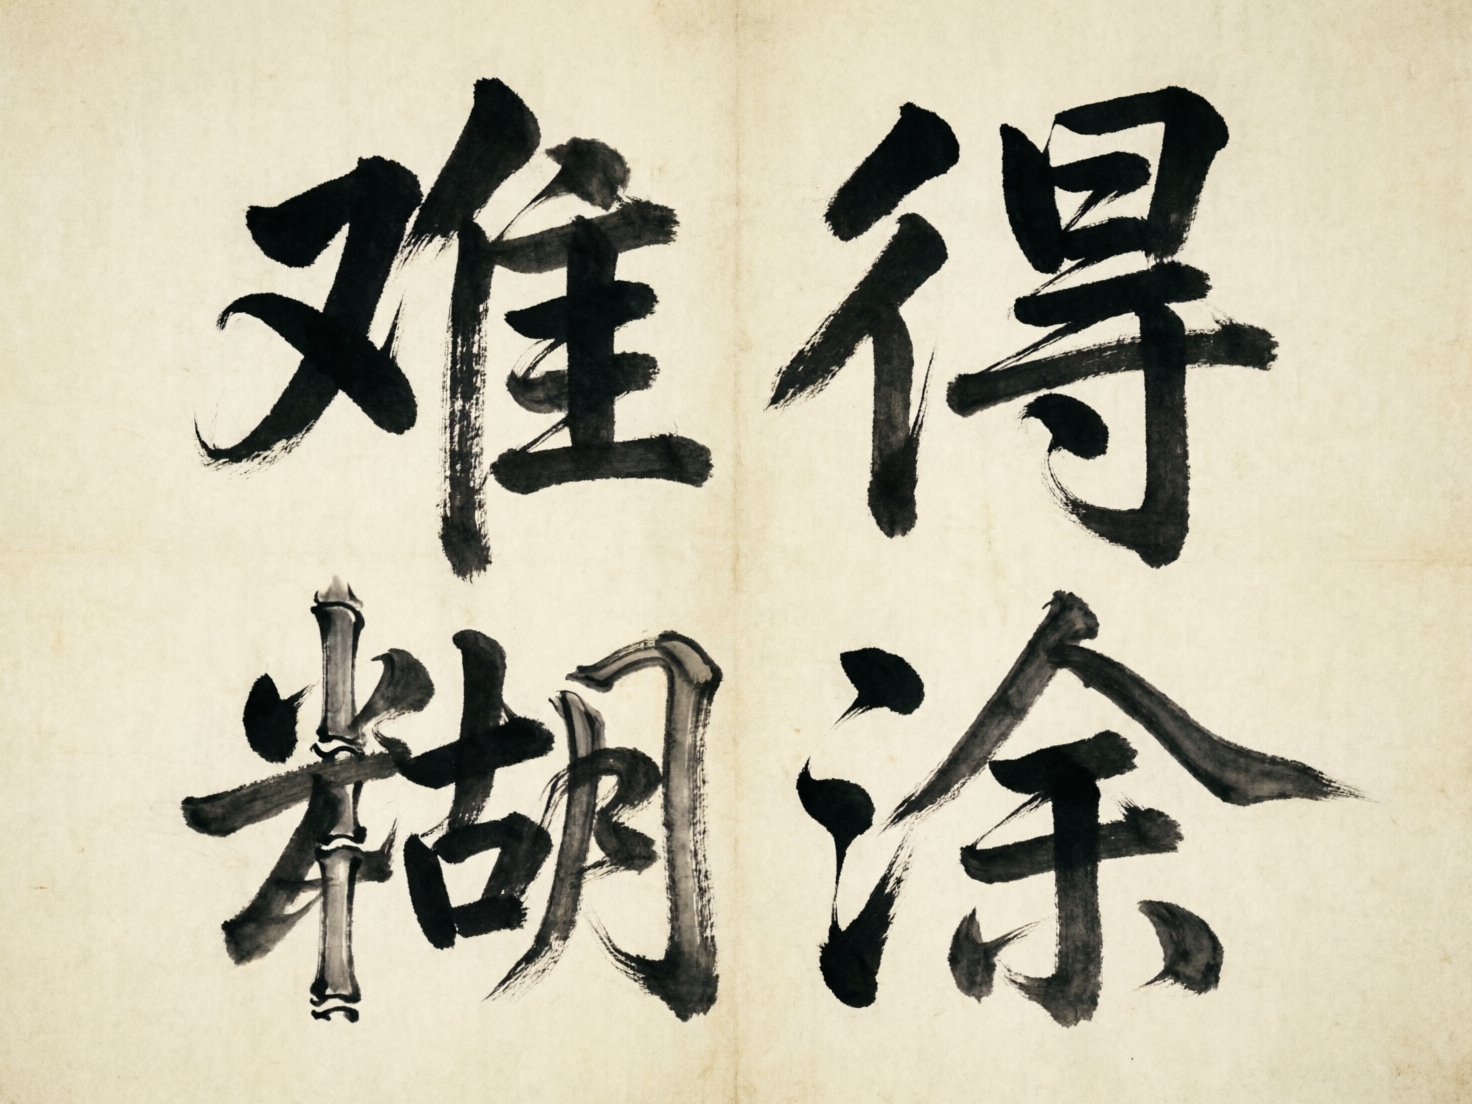 难得
糊涂